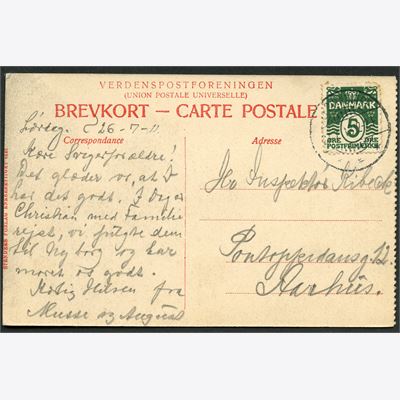 VERDENSPOSTFORENINGEN
(UNION POSTALE UNIVERSELLE)
BREVKORT — CARTE POSTALE
Correspondance
Adresse
DANMARK
5
ØRE ØRE
POSTFRIMÆRKE
26-7-11
Kære Svigerforældre!
Det glæder vi, at I
har det godt. I Dag er
Christian med Familie
rejst, vi fulgte dem
til Nyborg og har
moret os godt.
Kærlig Hilsen fra
Musse og August
Hr. Inspektør
Pontoppidansg. 12
Aarhus.
STENDERS FORLAG